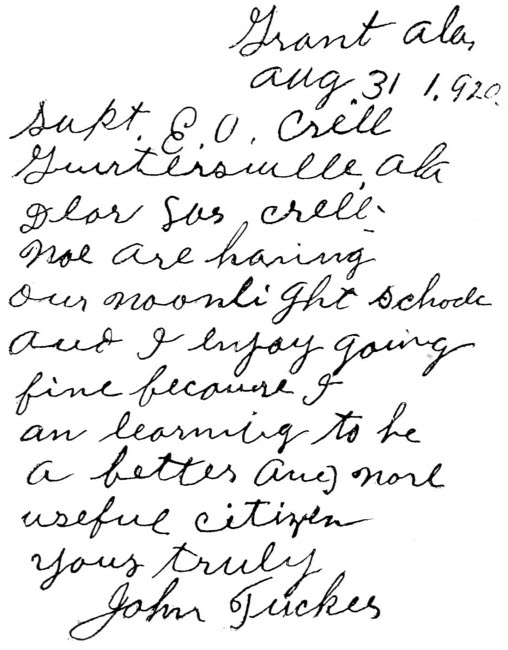 Grant Ala,
Aug 31 1.920.
Supt. E. O. Crell
Guntersville, Ala
Dear Sur crell-
We are having
our moonlight school
and I enjoy going
fine because I
am learning to be
a better and more
useful citizen
yours truly
John Tucker